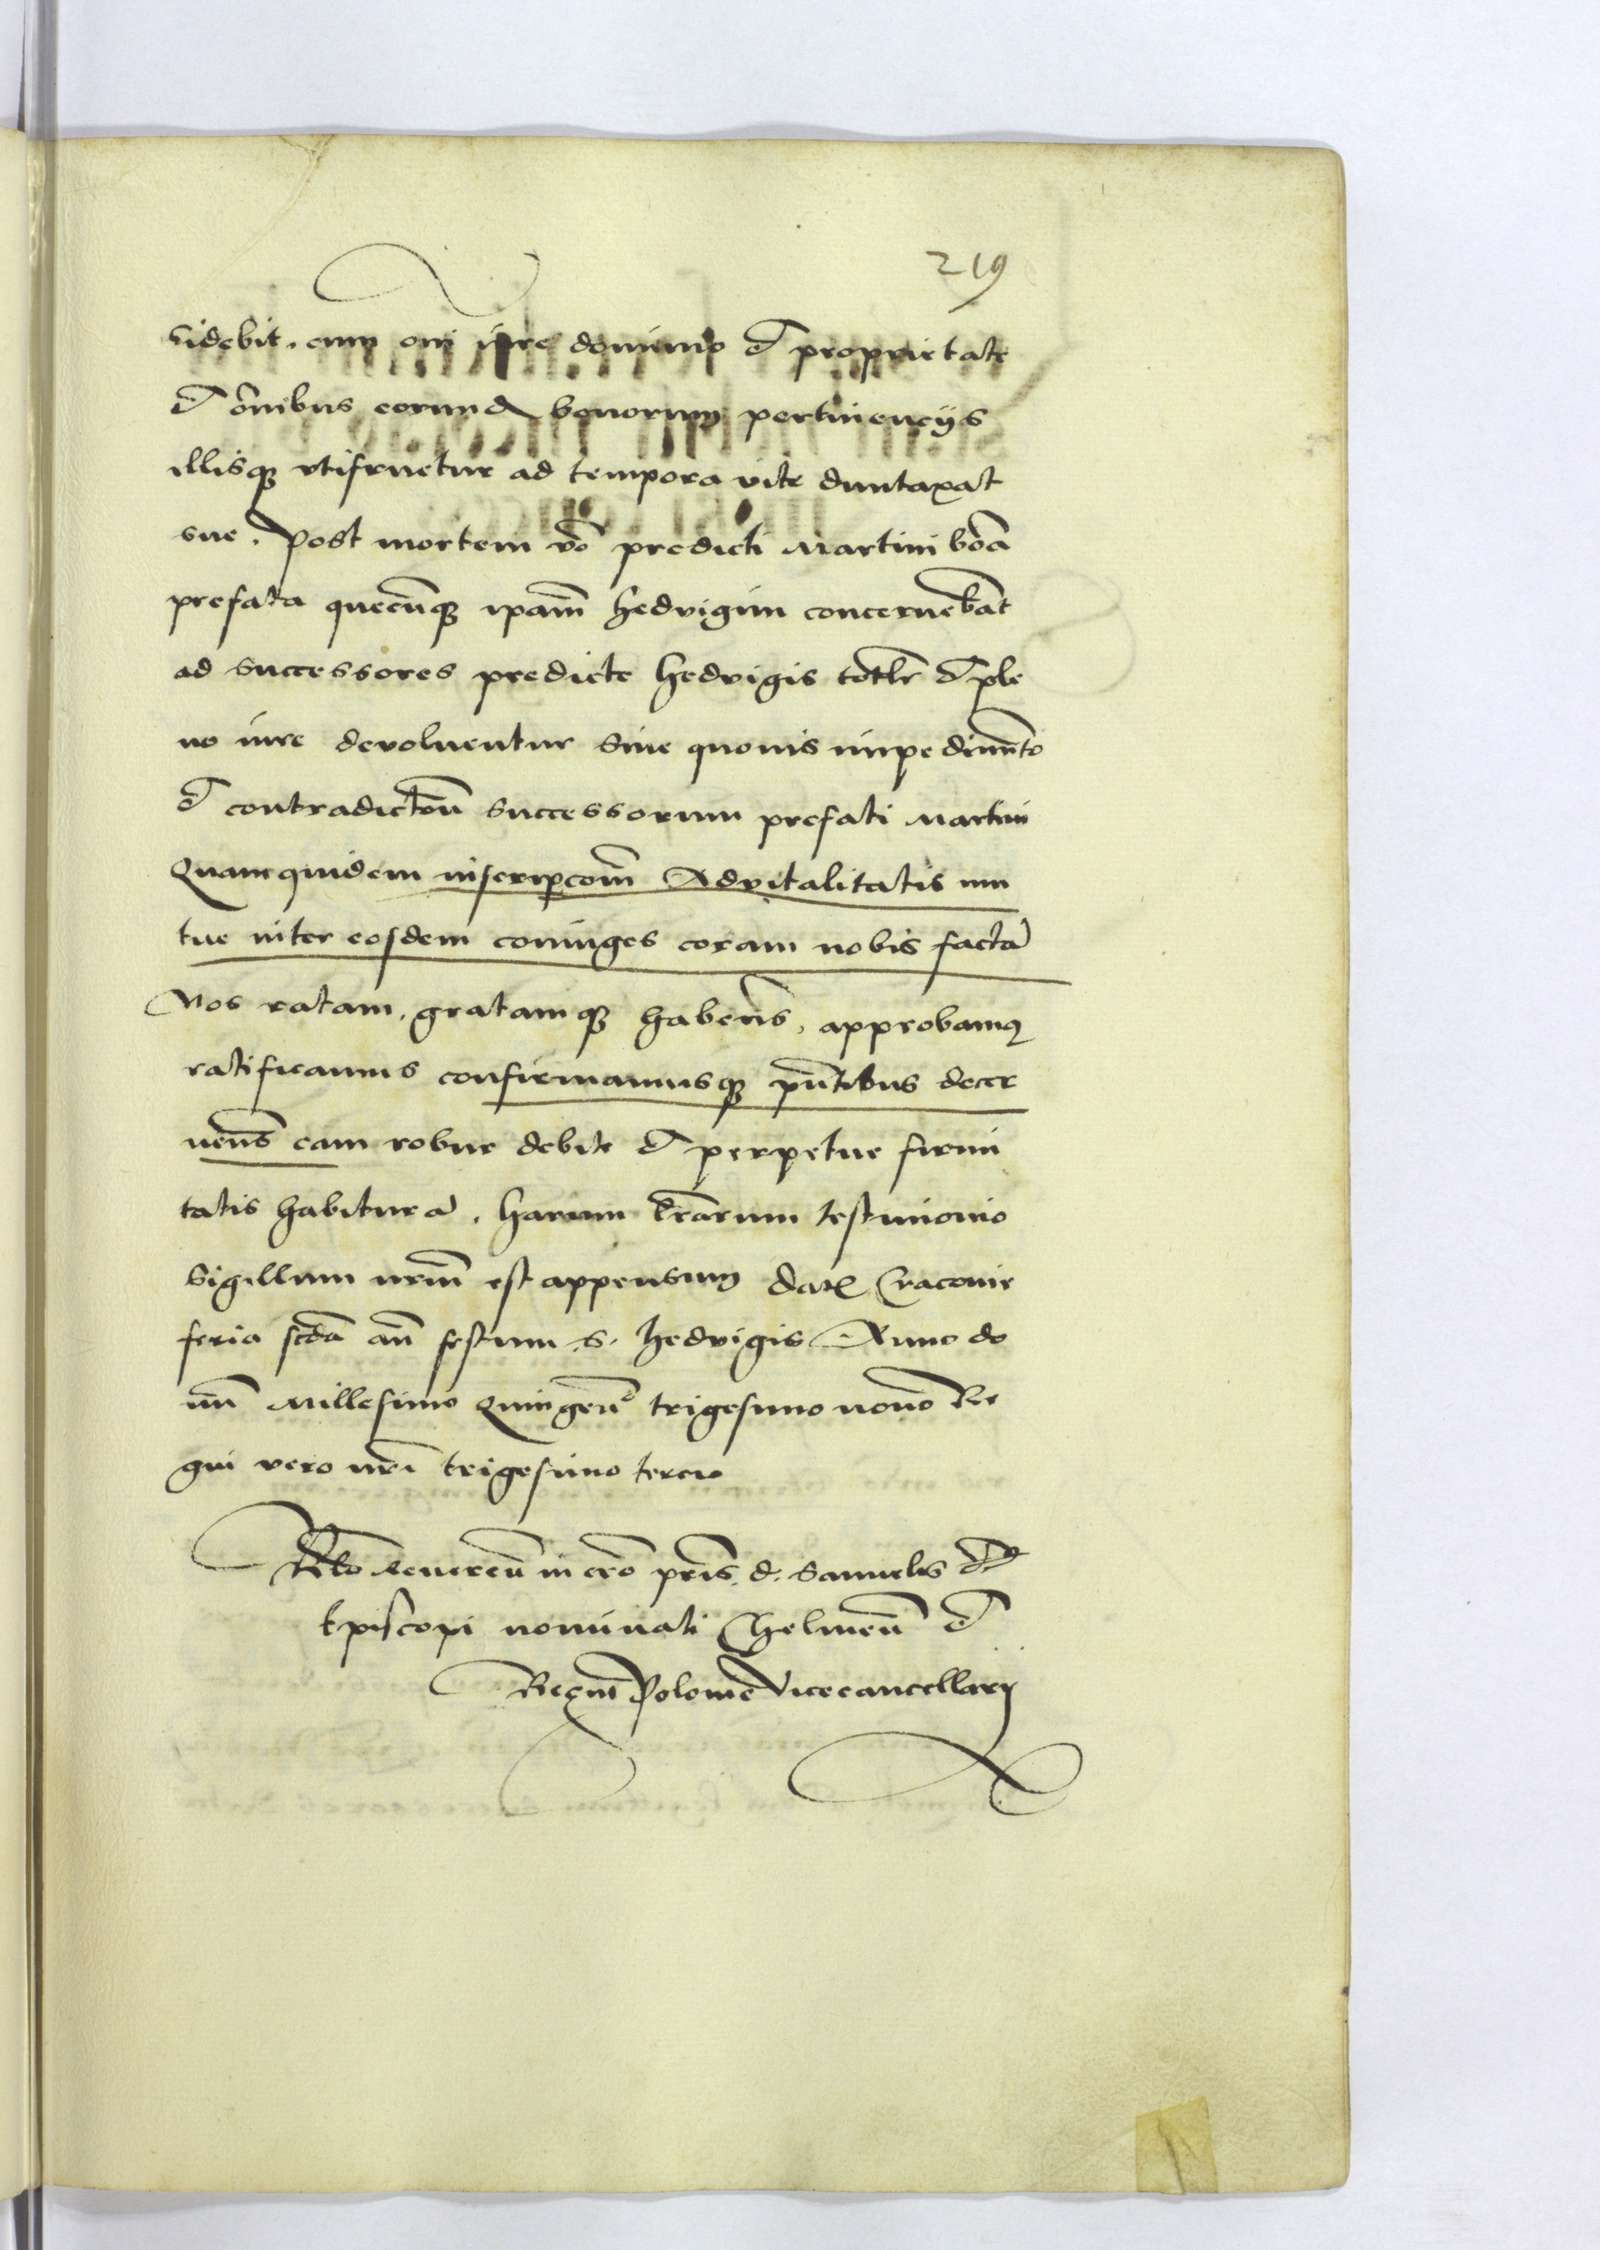 219
sidebit. cum oni iure dominio et proprietate
et oibus eorund bonorum pertinencijs
illisq vtifruetur ad tempora vite duntaxat
sue. Post mortem vo predicti Martini bona
prefata quecunq ipam Hedvigim concernebat
ad successores predicte Hedvigis totlr et ple
no iure devoluentur sine quouis impedimto
et contradictoe successorum prefati Martini
Quamquidem inscripcom Advitalitatis mu
tue inter eosdem coniuges coram nobis facta
Nos ratam, gratamq habens, approbamq
ratificamus confirmamusq pntibus decer
nens eam robur debite et perpetue firmi
tatis habitura. Harum lrarum testimonio
Sigillum nrm est appensum Dat Cracovie
feria scda an festum S. Hedvigis Anno do
mi Millesimo Quingen trigesimo nono Re
gni vero nri trigesimo tercio
Rlo Reveren in cro pris d. Samuelis
Episcopi nominati Chelmen et
Regni Polonie Vicecancellarij